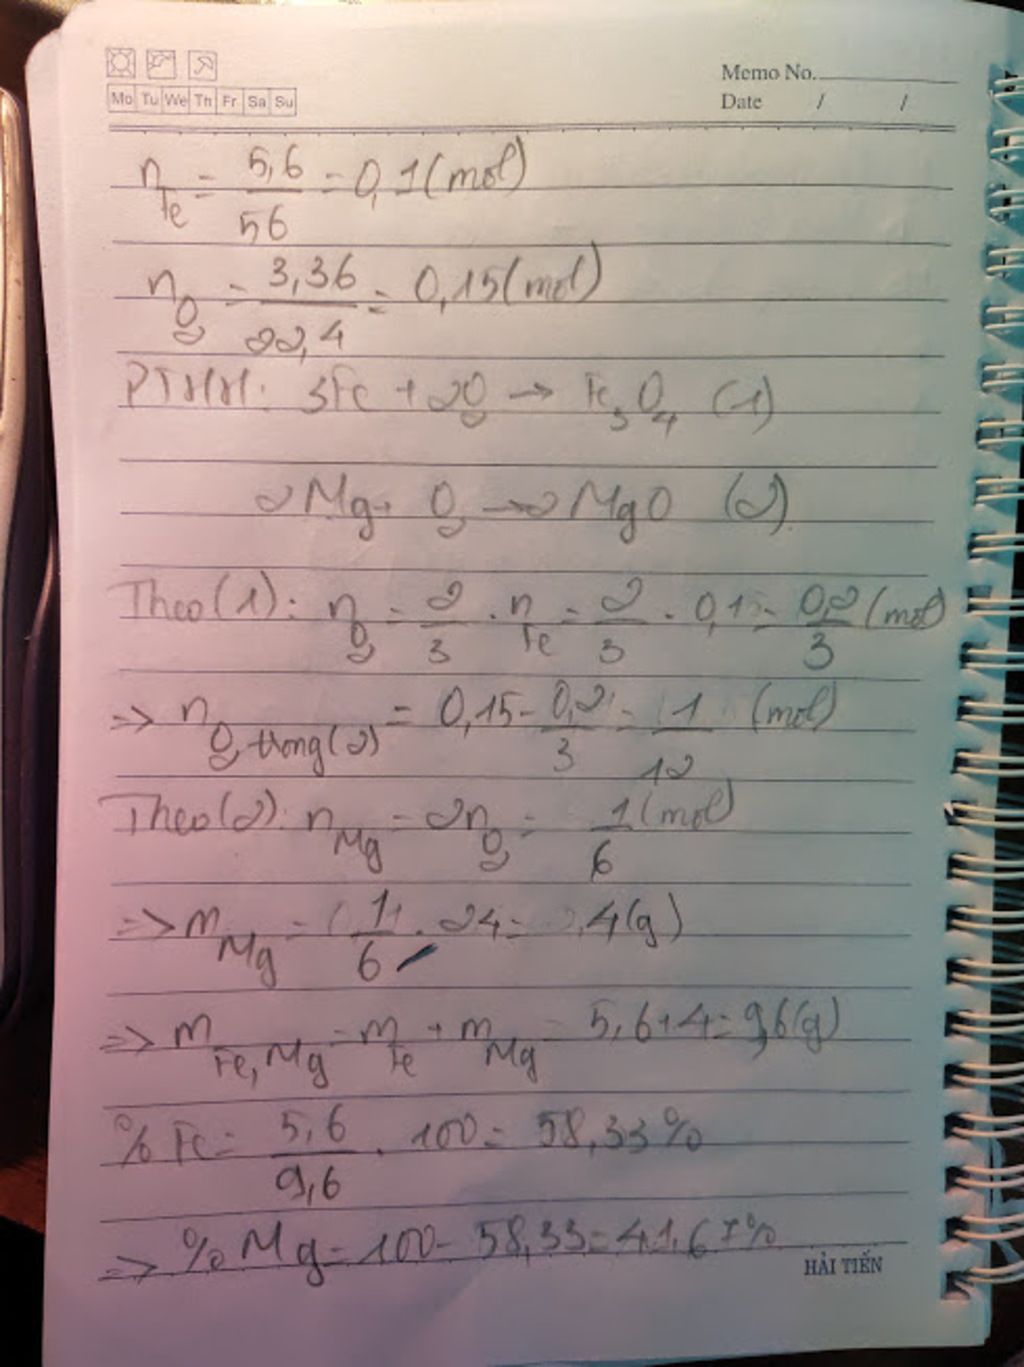 Memo No.
Mo Tu We Th Fr Sa Su
Date / /
n Fe = 5,6/56 = 0,1 (mol)
n O2 = 3,36/22,4 = 0,15 (mol)
PTHH: 3Fe + 2O2 → Fe3O4 (1)
2Mg + O2 → 2MgO (2)
Theo (1): n O2 = 2/3 . n Fe = 2/3 . 0,1 = 0,2/3 (mol)
=> n O2 trong (2) = 0,15 - 0,2/3 = 1/12 (mol)
Theo (2): n Mg = 2n O2 = 1/6 (mol)
=> m Mg = 1/6 . 24 = 4 (g)
=> m Fe, Mg = m Fe + m Mg = 5,6 + 4 = 9,6 (g)
% Fe = 5,6/9,6 . 100 = 58,33%
=> % Mg = 100 - 58,33 = 41,67%
HẢI TIẾN